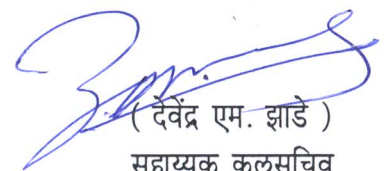 ( देवेंद्र एम. झाडे )
सहाय्यक कुलसचिव